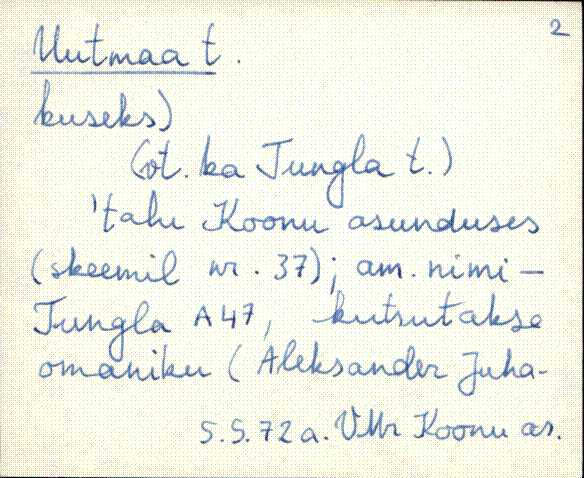 2
Uutmaa t.
kuseks)
(vt. ka Jungla t.)
'talu Koonu asunduses
(skeemil nr. 37); am. nimi -
Jungla A47, kutsutakse
omaniku (Aleksander Juha-
S.S.72a. VMr Koonu as.